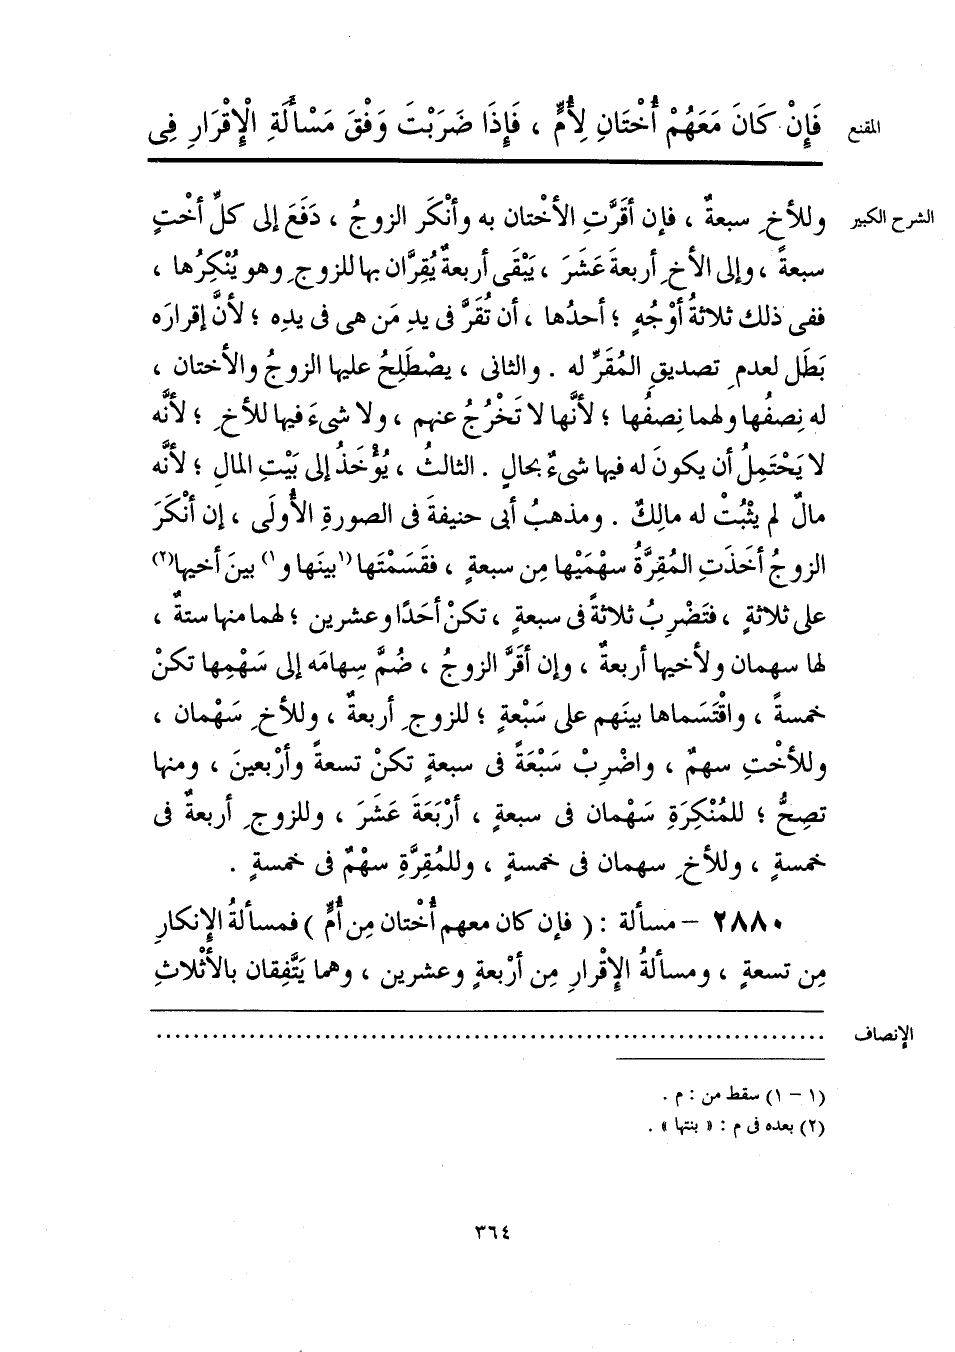 المقنع فَإِنْ كَانَ مَعَهُمْ أُخْتَانِ لِأُمٍّ ، فَإِذَا ضَرَبْتَ وَفْقَ مَسْأَلَةِ الْإِقْرَارِ فِى
الشرح الكبير وللأخِ سبعةٌ ، فإن أقَرَّتِ الأخْتان به وأنْكَر الزوجُ ، دَفَعَ إلى كلِّ أخْتٍ
سبعةً ، وإلى الأخِ أربعةَ عَشَرَ ، يَبْقَى أربعةٌ يُقِرَّان بها للزوجِ وهو يُنْكِرُها ،
ففى ذلك ثلاثةُ أوْجُهٍ ؛ أحدُها ، أن تُقَرَّ فى يدِ مَن هى فى يدِه ؛ لأنَّ إقرارَه
بَطَل لعدمِ تصديقِ المُقَرِّ له . والثانى ، يصْطَلِحُ عليها الزوجُ والأختان ،
له نِصفُها ولهما نِصفُها ؛ لأنَّها لا تَخْرُجُ عنهم ، ولا شىءَ فيها للأخِ ؛ لأنَّه
لا يَحْتَمِلُ أن يكونَ له فيها شىءٌ بحالٍ . الثالثُ ، يُؤْخَذُ إلى بَيْتِ المالِ ؛ لأنَّه
مالٌ لم يثْبُتْ له مالِكٌ . ومذهبُ أبى حنيفةَ فى الصورةِ الأُولَى ، إن أنْكَرَ
الزوجُ أخَذَتِ المُقِرَّةُ سهْمَيْها مِن سبعةٍ ، فقَسَمَتْها (١بينَها و١) بينَ أخيها(٢)
على ثلاثةٍ ، فتَضْرِبُ ثلاثةً فى سبعةٍ ، تكنْ أحَدًا وعشرين ؛ لهما منها ستةٌ ،
لها سهمان ولأخيها أربعةٌ ، وإن أقَرَّ الزوجُ ، ضُمَّ سِهامَه إلى سَهْمِها تكنْ
خمسةً ، واقْتَسَماها بينَهم على سَبْعةٍ ؛ للزوجِ أربعةٌ ، وللأخِ سَهْمان ،
وللأخْتِ سهمٌ ، واضْرِبْ سَبْعَةً فى سبعةٍ تكنْ تسعةً وأرْبعينَ ، ومنها
تصِحُّ ؛ للمُنْكِرَةِ سَهْمان فى سبعةٍ ، أرْبَعَةَ عَشَرَ ، وللزوجِ أربعةٌ فى
خمسةٍ ، وللأخِ سهمان فى خمسةٍ ، وللمُقِرَّةِ سهْمٌ فى خمسةٍ .
٢٨٨٠ – مسألة : ( فإن كان معهم أُخْتان مِن أُمٍّ ) فمسألةُ الإِنكارِ
مِن تسعةٍ ، ومسألةُ الإِقرارِ مِن أرْبعةٍ وعشرين ، وهما يَتَّفِقان بالأثْلاثِ
الإنصاف ........................................................................
(١ – ١) سقط من : م .
(٢) بعده فى م : « بنتها » .
٣٦٤